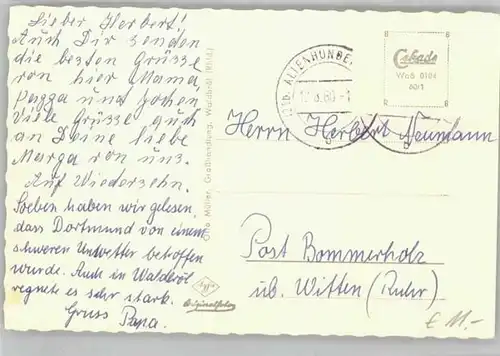 Lieber Herbert!
Auch Dir senden
die besten Grüsse
von hier Mama,
Pappa und Jochen
Viele Grüsse auch
an Deine liebe
Marga von uns.
Auf Wiedersehn.
Soeben haben wir gelesen
dass Dortmund von einem
schweren Unwetter betroffen
wurde. Auch in Waldbröl
regnete es sehr stark.
Gruss Papa.
Otto Müller, Großhandlung, Waldbröl (Rhld.)
Agfa
Originalfoto
ALTENHUNDEM
Cekade
Waß 8104
60/1
Herrn Herbert Neumann
Post Bommerholz
üb. Witten (Ruhr)
€ 11,-